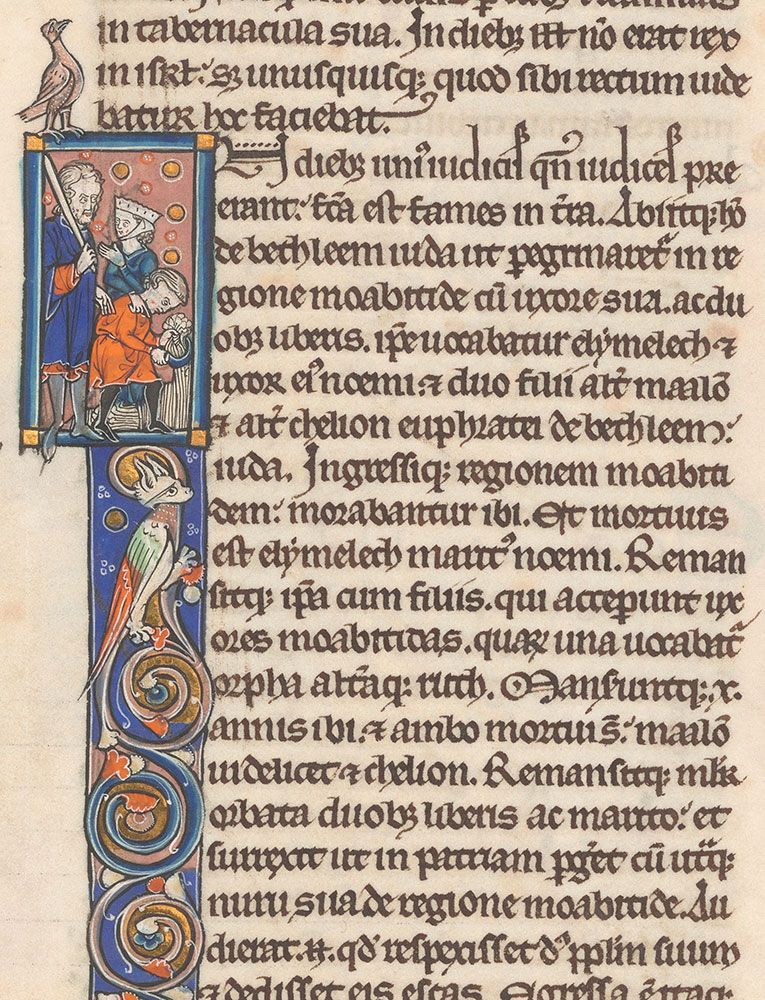 in tabernacula sua. In dieb; ill' nō erat rex
in isrl': sꝫ unusquisq; quod sibi rectum uide
batur hoc faciebat.
In dieb; uni' iudicis qn̄ iudices pre
erant: fc̄a est fames in t̄ra. Abiitq; hō
de bethleem iuda ut ꝑegrinaret᷑ in re
gione moabitide cū uxore sua. ac du
ob; liberis. ip̄e uocabatur elymelech ⁊
uxor ei' noemi. ⁊ duo filii alt̄ maalō
⁊ alt̄ chelion euphratei de bethleem:
iuda. Ingressiq; regionem moabiti
dem: morabantur ibi. Et mortuus
est elymelech marit' noemi. Reman
sitq; ip̄a cum filiis. qui acceperunt ux
ores moabitidas. quaꝝ una uocabat᷑
orpha alt̄aq; ruth. Manseruntq; x.
annis ibi. ⁊ ambo mortui s̄: maalō
uidelicet ⁊ chelion. Remansitq; ml'r
orbata duob; liberis ac marito: et
surrexit ut in patriam ꝑḡet cū ut̄q;
nuru sua de regione moabitide. Au
dierat .n. qd̄ respexisset d̄s pp̄lm suum
⁊ dedisset eis escas. Egressa